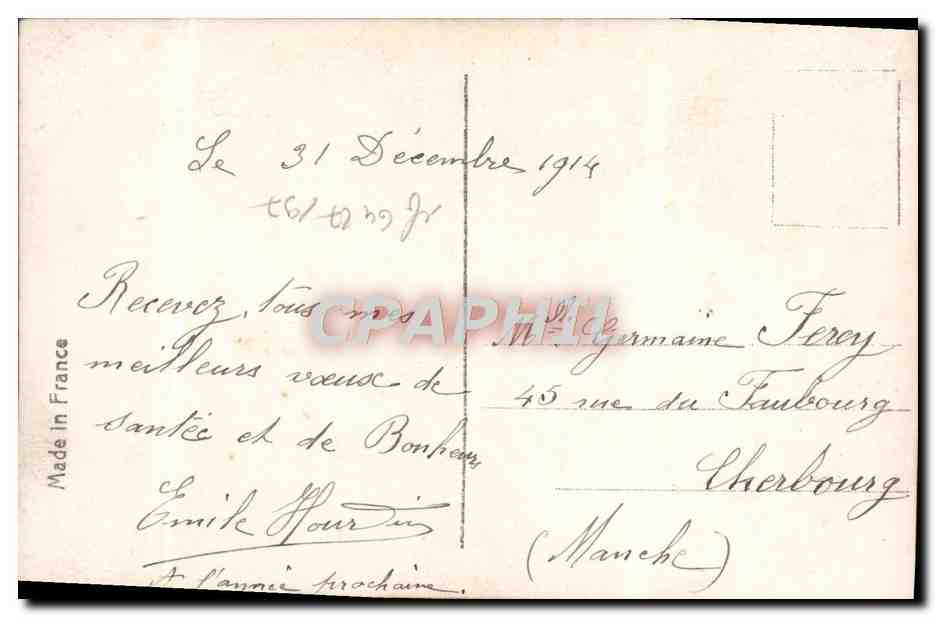 Le 31 Décembre 1914
Recevez, tous mes
meilleurs vœux de
santée et de Bonheur
Emile Hourdin
A l'année prochaine.
Made in France
CPAPHIL
Mlle Germaine Feroy
45 rue du Faubourg
Cherbourg
(Manche)